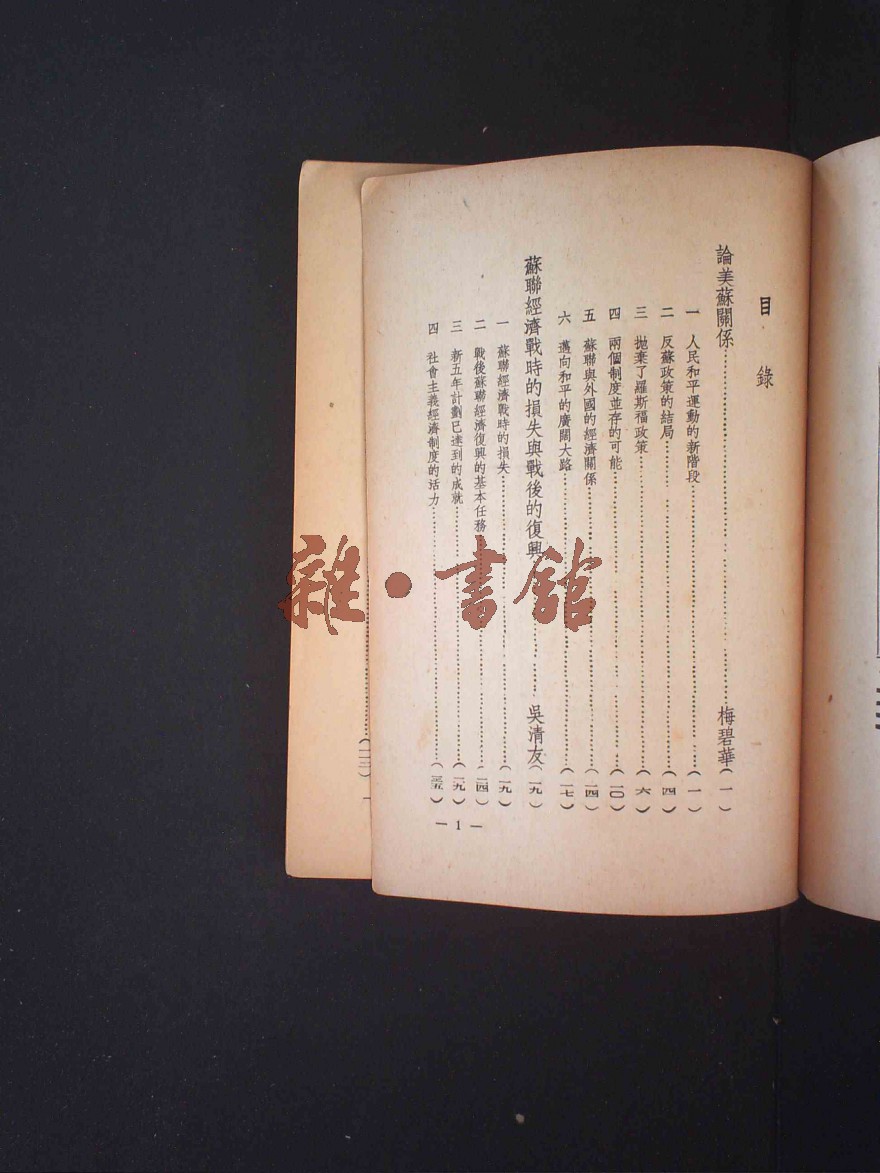 目錄
論美蘇關係……梅碧華(一)
一 人民和平運動的新階段……(一)
二 反蘇政策的結局……(四)
三 拋棄了羅斯福政策……(六)
四 兩個制度並存的可能……(一〇)
五 蘇聯與外國的經濟關係……(一四)
六 邁向和平的廣闊大路……(一七)
蘇聯經濟戰時的損失與戰後的復興……吳清友(一九)
一 蘇聯經濟戰時的損失……(一九)
二 戰後蘇聯經濟復興的基本任務……(二四)
三 新五年計劃已達到的成就……(二九)
四 社會主義經濟制度的活力……(三五)
— 1 —
……(一三)
雜·書館